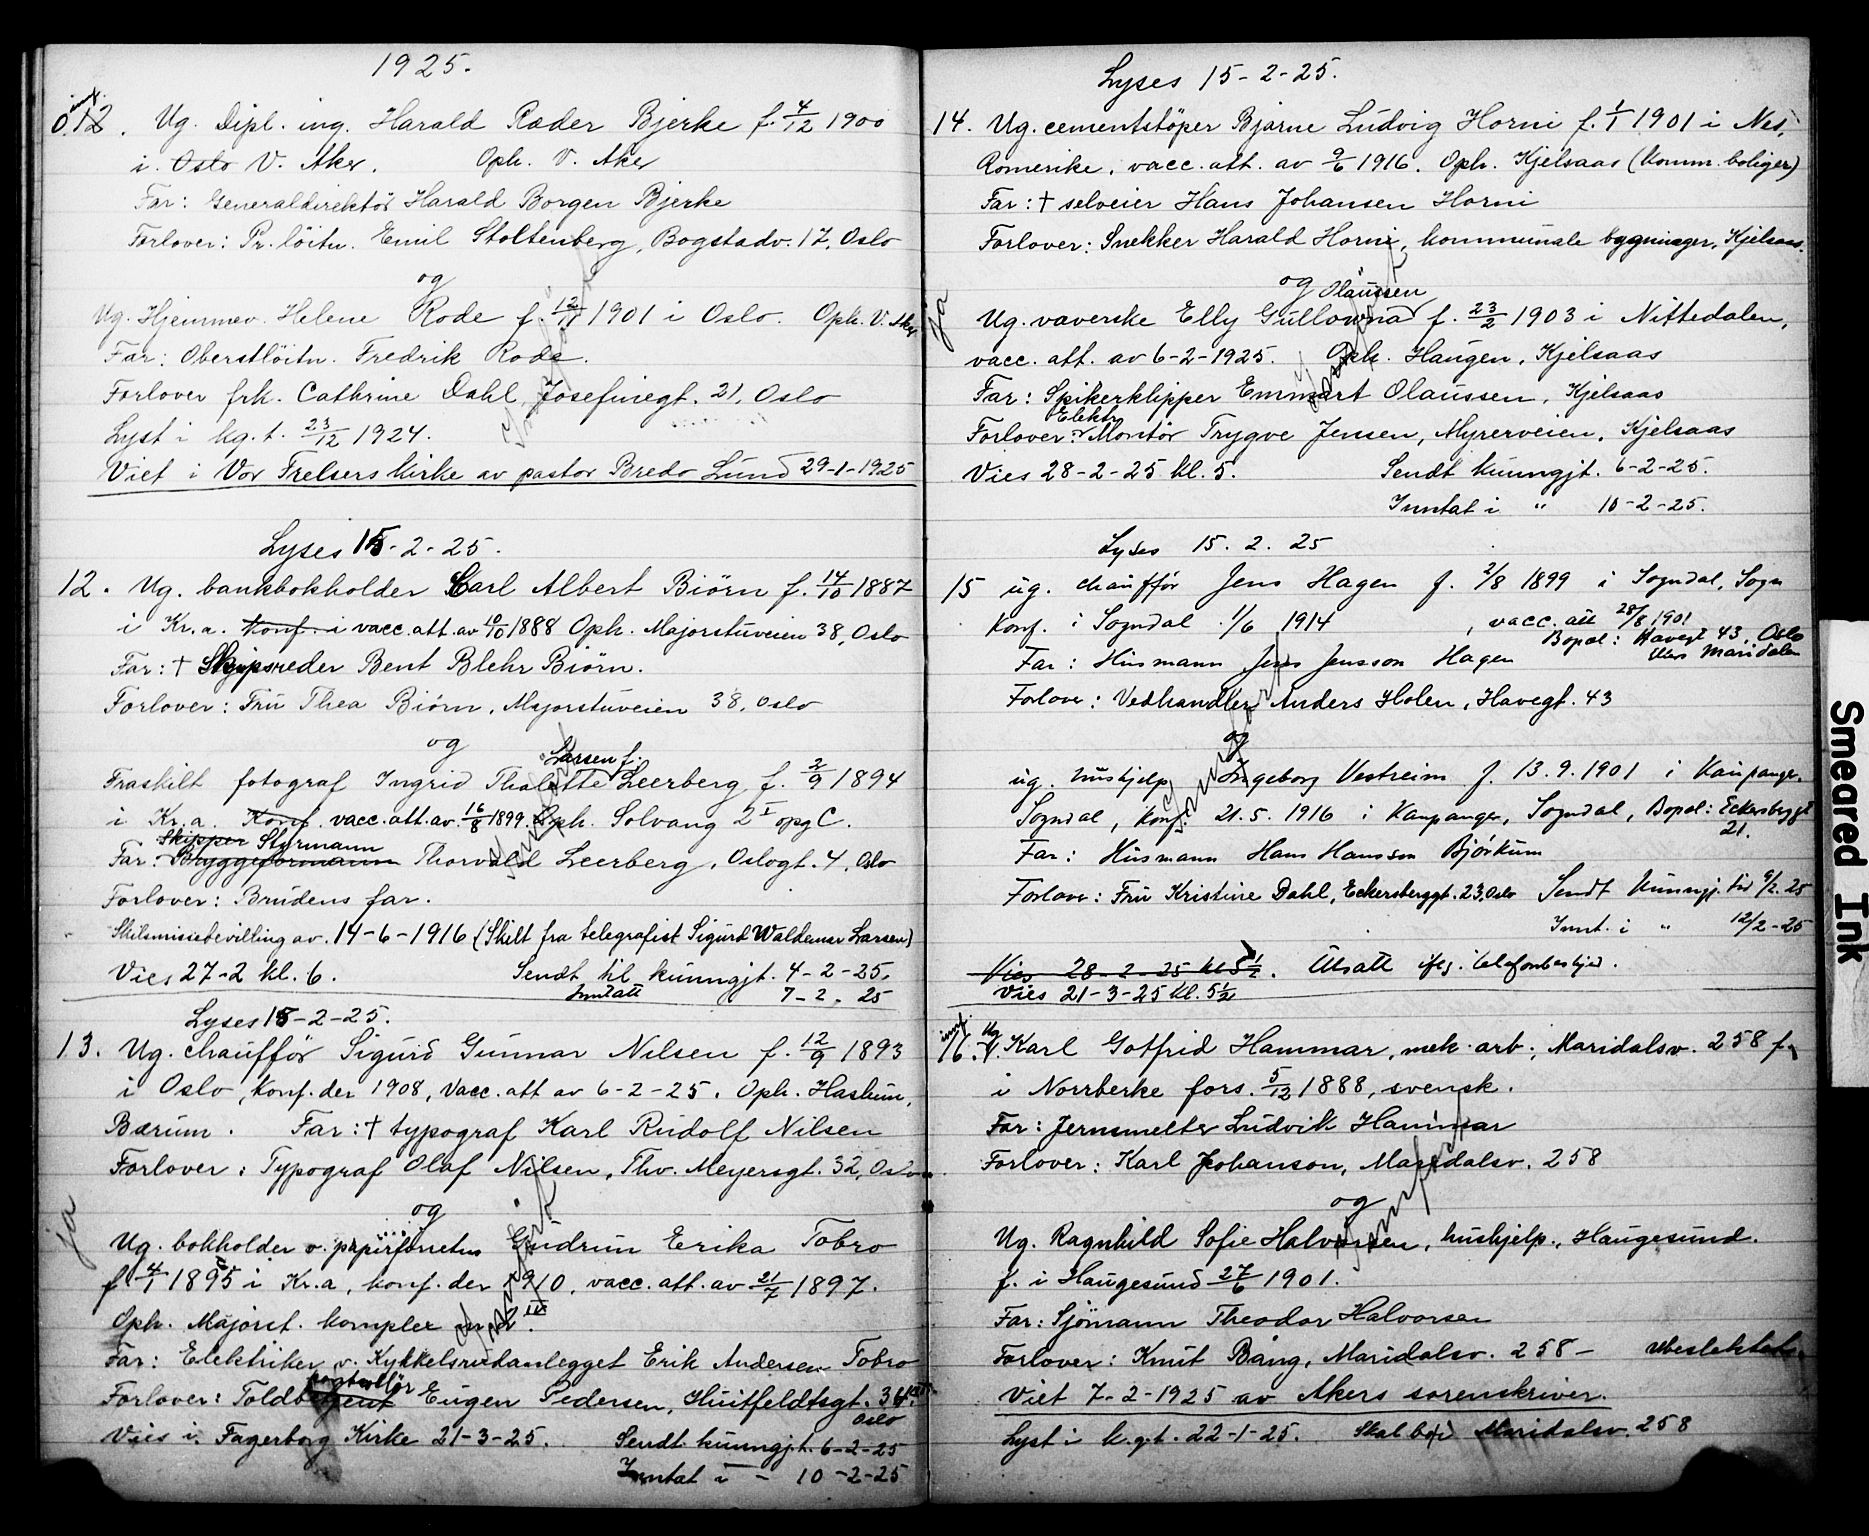 1925.
inf.
012. Ug. Dipl. ing. Harald Ræder Bjerke f. 4/12 1900
i Oslo V. Aker. Oph. V. Aker
Far: Generaldirektör Harald Borgen Bjerke
Forlover: Pr. löitn. Emil Stoltenberg, Bogstadv. 17, Oslo
og
Ug. Hjemmev. Helene Rode f. 12/11 1901 i Oslo. Oph. V. Aker
Far: Oberstlöitn. Fredrik Rode.
Forlover frk. Cathrine Dahl, Josefinegt. 21, Oslo
Lyst i kg.t. 23/12 1924.
Viet i Vor Frelsers kirke av pastor Bredo Lund 29-1-1925
Lyses 15-2-25.
12. Ug. bankbokholder Carl Albert Biörn f. 14/10 1887
i Kr.a. konf. i vacc. att. av 10/10 1888 Oph. Majorstuveien 38, Oslo
Far: † Skipsreder Bent Blehr Biörn.
Forlover: Fru Thea Biörn, Majorstuveien 38, Oslo
og
Larsen f.
Fraskilt fotograf Ingrid Thalette Leerberg f. 2/9 1894
i Kr.a. Konf. vacc. att. av. 16/8 1899. Oph. Solvang 2 I opg C.
Skipper Styrmann
Far: Bryggeformann Thorvald Leerberg, Oslogt. 4, Oslo
Forlover: Brudens far.
Skilsmissebevilling av. 14-6-1916 (Skilt fra telegrafist Sigurd Waldemar Larsen)
Vies 27-2 kl. 6. Sendt til kunngjt. 4-2-25.
Inntatt 7-2-25
Lyses 15-2-25.
13. Ug. chaufför Sigurd Gunnar Nilsen f. 12/9 1893
i Oslo, konf. der 1908, vacc. att av 6-2-25. Oph. Haslum,
Bærum. Far: † typograf Karl Rudolf Nilsen
Forlover: Typograf Olaf Nilsen, Thv. Meyersgt. 32, Oslo
og
ja
Ug. bokholder v. papirforretn Gudrun Erika Tobro
f. 4/1 1895 i Kr.a, konf. der 1910, vacc. att. av 21/7 1897.
Oph. Majorst. komplex
Far: Elektriker v. Kykkelsrudanlegget Erik Andersen Tobro
kontrollör
Forlover: Toldbetjent Eugen Pedersen, Huitfeldtsgt. 36
Oslo
Vies i Fagerborg Kirke 21-3-25. Sendt. kunngjt. 6-2-25
Inntat i - 10-2-25
Lyses 15-2-25.
14. Ug. cementstöper Bjarne Ludvig Horni f. 1/1 1901 i Nes,
Romerike, vacc. att. av 9/6 1916. Oph. Kjelsaas (Komm. boliger)
Far: † selveier Hans Johansen Horni
Forlover: Snekker Harald Horni, kommunale bygninger, Kjelsaas.
og
Olaussen
ja
Ug. væverske Elly Gullowna f. 23/2 1903 i Nittedalen,
vacc. att. av 6-2-1925. Oph. Haugen, Kjelsaas
Far: Spikerklipper Emmart Olaussen, Kjelsaas
Elektr.
Forlover: Montör Trygve Jensen, Myrerveien, Kjelsaas
Vies 28-2-25 kl. 5. Sendt kunngjt. 6-2-25.
Inntat i " 10-2-25.
Lyses 15. 2. 25
15 ug. chaufför Jens Hagen f. 2/8 1899 i Sogndal, Sogn
Konf. i Sogndal 1/6 1914, vacc. att 28/8 1901
Bopæl: Havegt 43, Oslo
Far: Husmann Jens Jensson Hagen Maridalen
Forlover: Vedhandler Anders Holen, Havegt. 43
og
ug. hushjelp Ingeborg Vestreim f. 13.9.1901 i Kaupanger,
Sogndal, Konf. 21.5.1916 i Kaupanger, Sogndal, Bopæl: Eckersbergt
21.
Far: Husmann Hans Hansson Bjørkum
Forlover: Fru Kristine Dahl, Eckersberggt. 23, Oslo Sendt Kunngj. tid 9/2.25
Innt. i " 12/2-25
Vies 28-2-25 kl 5 1/2. Utsatt ifg. telefonbeskjed.
Vies 21-3-25 kl. 5 1/2
inf.
16. Ug. Karl Gotfrid Hammar, mek. arb., Maridalsv. 258 f.
i Norrberke fors. 5/12 1888, svensk.
Far: Jernsmelter Ludvik Hammar
Forlover: Karl Johanson, Maridalsv. 258
og
Ug. Ragnhild Sofie Halvorsen, hushjelp., Haugesund.
f. i Haugesund 27/6 1901.
Far: Sjömann Theodor Halvorsen
Forlover: Knut Bang, Maridalsv. 258 - Ubeslektede.
Viet 7-2-1925 av Akers sorenskriver.
Lyst i k.g.t. 22-1-25. Skal bo i Maridalsv. 258
Smeared Ink